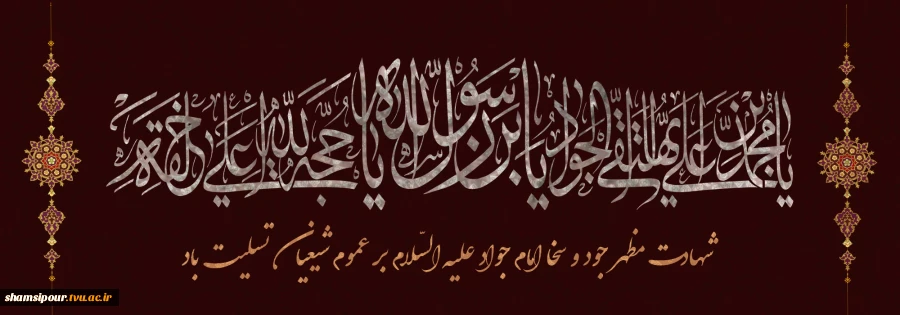 يا محمد بن علي ايها التقي الجواد يا بن رسول الله يا حجة الله على خلقه
شهادت مظهر جود و سخا امام جواد علیه السّلام بر عموم شیعیان تسلیت باد
shamsipour.tvu.ac.ir